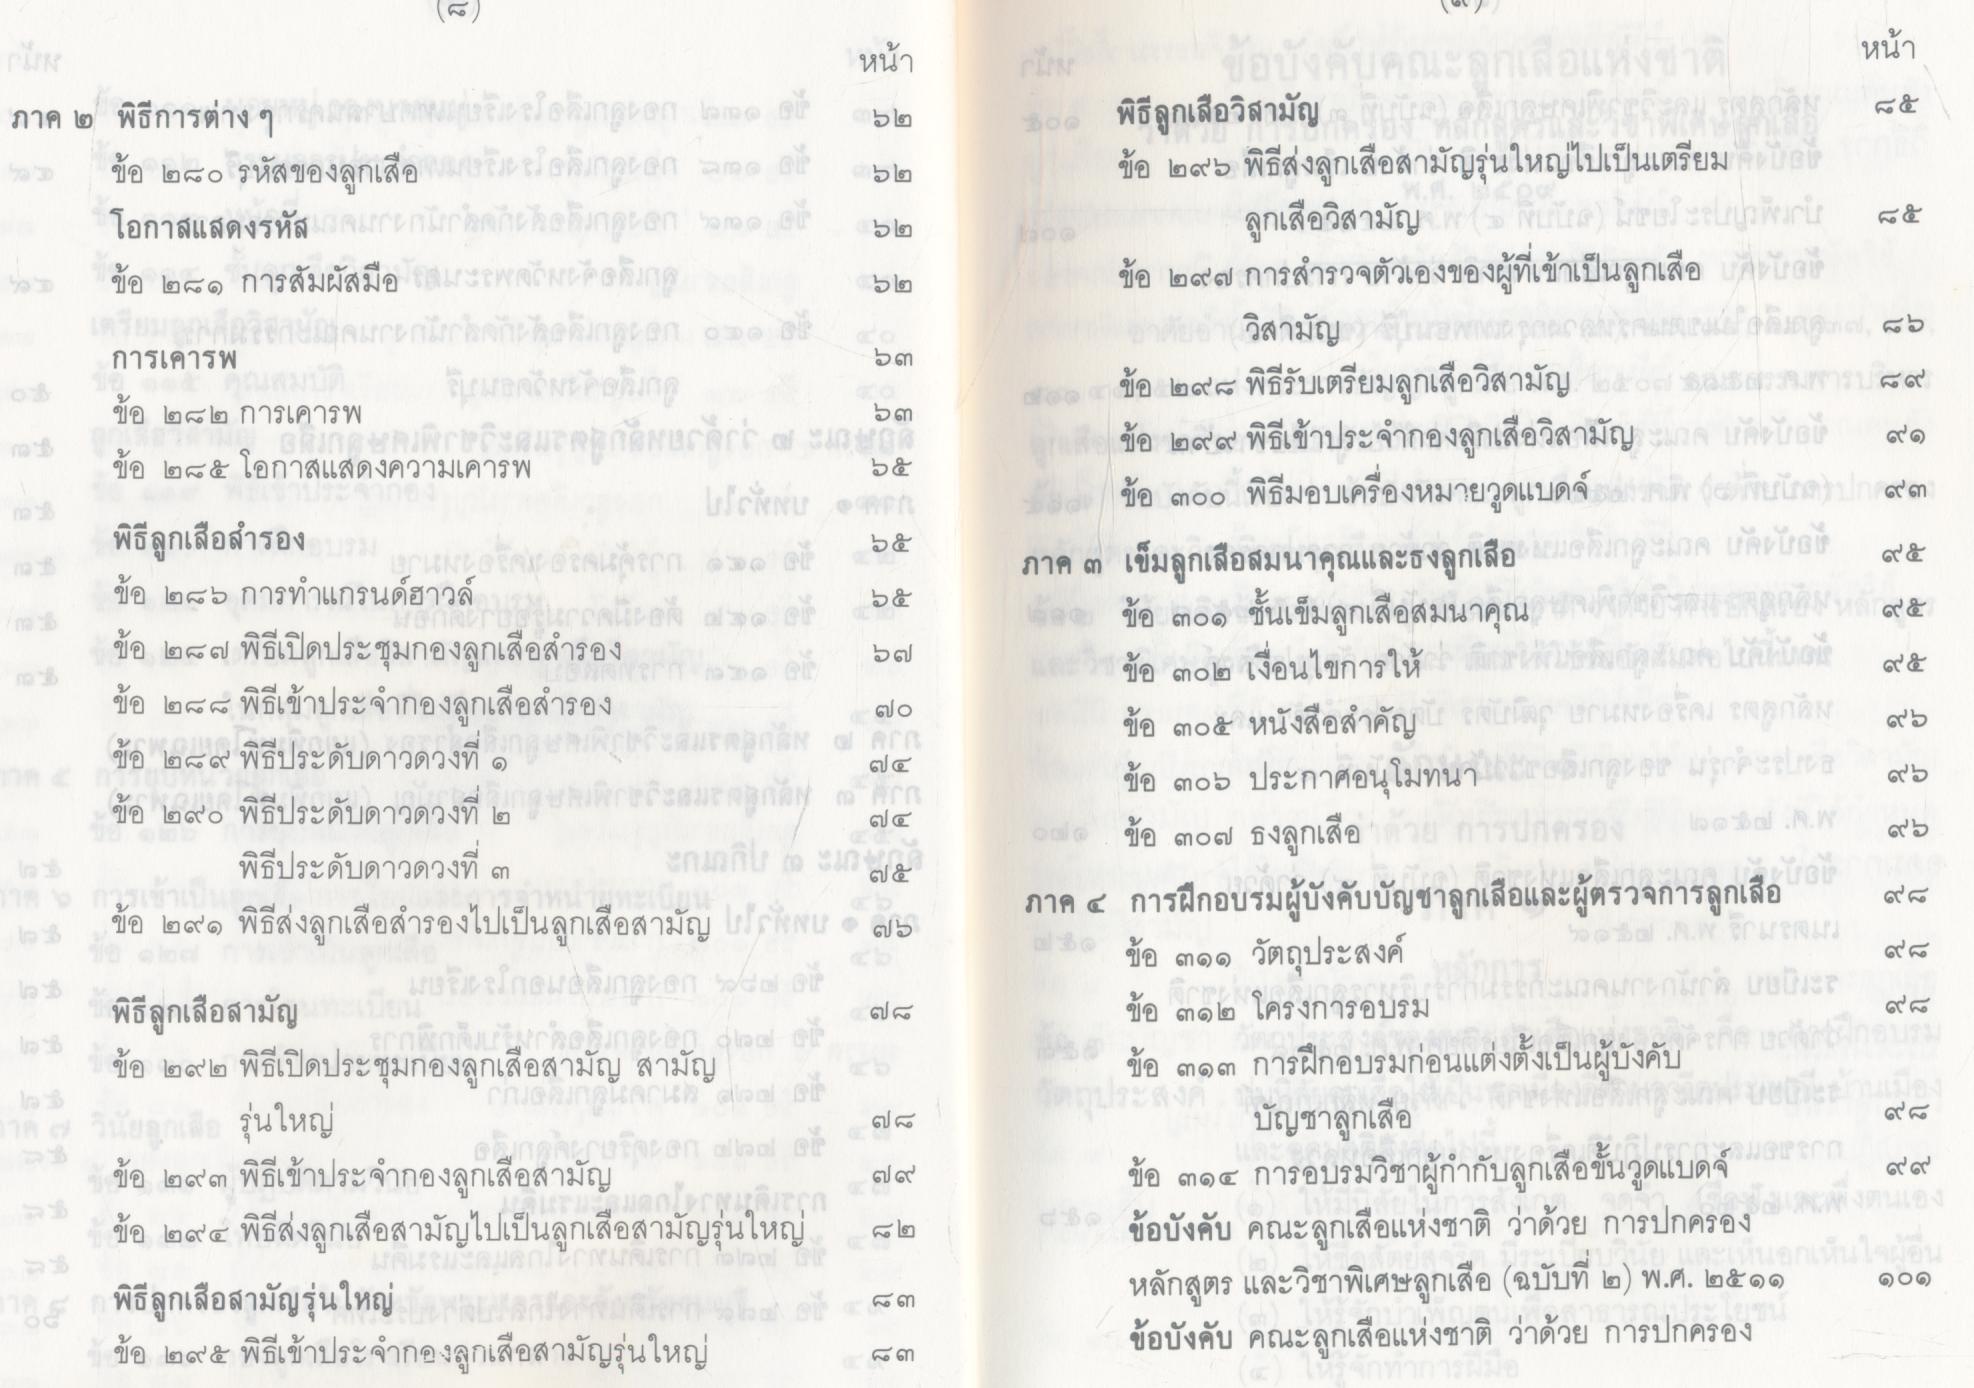 (๘)
หน้า
ภาค ๒ พิธีการต่าง ๆ ๖๒
ข้อ ๒๘๐ รหัสของลูกเสือ ๖๒
โอกาสแสดงรหัส ๖๒
ข้อ ๒๘๑ การสัมผัสมือ ๖๒
การเคารพ ๖๓
ข้อ ๒๘๒ การเคารพ ๖๓
ข้อ ๒๘๕ โอกาสแสดงความเคารพ ๖๕
พิธีลูกเสือสำรอง ๖๕
ข้อ ๒๘๖ การทำแกรนด์ฮาวล์ ๖๕
ข้อ ๒๘๗ พิธีเปิดประชุมกองลูกเสือสำรอง ๖๗
ข้อ ๒๘๘ พิธีเข้าประจำกองลูกเสือสำรอง ๗๐
ข้อ ๒๘๙ พิธีประดับดาวดวงที่ ๑ ๗๔
ข้อ ๒๙๐ พิธีประดับดาวดวงที่ ๒ ๗๔
พิธีประดับดาวดวงที่ ๓ ๗๕
ข้อ ๒๙๑ พิธีส่งลูกเสือสำรองไปเป็นลูกเสือสามัญ ๗๖
พิธีลูกเสือสามัญ ๗๘
ข้อ ๒๙๒ พิธีเปิดประชุมกองลูกเสือสามัญ สามัญ
รุ่นใหญ่ ๗๘
ข้อ ๒๙๓ พิธีเข้าประจำกองลูกเสือสามัญ ๗๙
ข้อ ๒๙๔ พิธีส่งลูกเสือสามัญไปเป็นลูกเสือสามัญรุ่นใหญ่ ๘๒
พิธีลูกเสือสามัญรุ่นใหญ่ ๘๓
ข้อ ๒๙๕ พิธีเข้าประจำกองลูกเสือสามัญรุ่นใหญ่ ๘๓
(๙)
หน้า
พิธีลูกเสือวิสามัญ ๘๕
ข้อ ๒๙๖ พิธีส่งลูกเสือสามัญรุ่นใหญ่ไปเป็นเตรียม
ลูกเสือวิสามัญ ๘๕
ข้อ ๒๙๗ การสำรวจตัวเองของผู้ที่เข้าเป็นลูกเสือ
วิสามัญ ๘๖
ข้อ ๒๙๘ พิธีรับเตรียมลูกเสือวิสามัญ ๘๙
ข้อ ๒๙๙ พิธีเข้าประจำกองลูกเสือวิสามัญ ๙๑
ข้อ ๓๐๐ พิธีมอบเครื่องหมายวูดแบดจ์ ๙๓
ภาค ๓ เข็มลูกเสือสมนาคุณและธงลูกเสือ ๙๕
ข้อ ๓๐๑ ชั้นเข็มลูกเสือสมนาคุณ ๙๕
ข้อ ๓๐๒ เงื่อนไขการให้ ๙๕
ข้อ ๓๐๕ หนังสือสำคัญ ๙๖
ข้อ ๓๐๖ ประกาศอนุโมทนา ๙๖
ข้อ ๓๐๗ ธงลูกเสือ ๙๖
ภาค ๔ การฝึกอบรมผู้บังคับบัญชาลูกเสือและผู้ตรวจการลูกเสือ ๙๘
ข้อ ๓๑๑ วัตถุประสงค์ ๙๘
ข้อ ๓๑๒ โครงการอบรม ๙๘
ข้อ ๓๑๓ การฝึกอบรมก่อนแต่งตั้งเป็นผู้บังคับ
บัญชาลูกเสือ ๙๘
ข้อ ๓๑๔ การอบรมวิชาผู้กำกับลูกเสือขั้นวูดแบดจ์ ๙๙
ข้อบังคับ คณะลูกเสือแห่งชาติ ว่าด้วย การปกครอง
หลักสูตร และวิชาพิเศษลูกเสือ (ฉบับที่ ๒) พ.ศ. ๒๕๑๑ ๑๐๑
ข้อบังคับ คณะลูกเสือแห่งชาติ ว่าด้วย การปกครอง